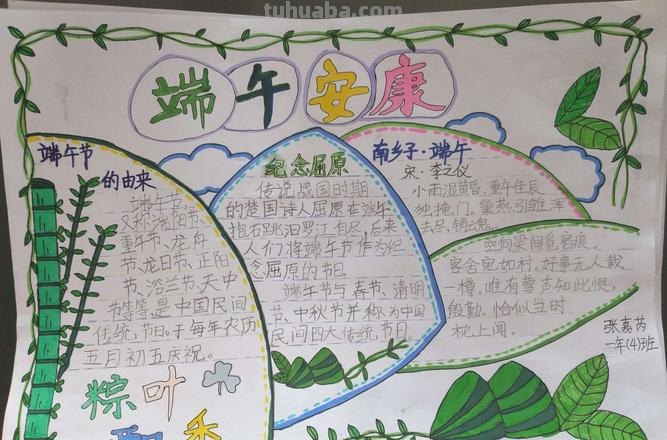 tuhuaba.com
端午安康
端午节
的由来
端午节,
又称端阳节、
重午节、龙舟
节、龙日节、正阳
节、浴兰节、天中
节等等,是中国民间
传统节日。于每年农历
五月初五庆祝。
粽叶
飘香
纪念屈原
传说战国时期
的楚国诗人屈原在端午
抱石跳汨罗江自尽,后来
人们将端午节作为纪
念屈原的节日
端午节与春节、清明
节、中秋节并称为中国
民间四大传统节日。
南乡子·端午
宋·李之仪
小雨湿黄昏。重午佳辰
独掩门。巢燕引雏浑
去尽,销魂。
空向梁间觅宿痕。
客舍宛如村。好事无人载
一樽。唯有莺声知此恨,
殷勤。恰似当时
枕上闻。
张嘉芮
一年(4)班